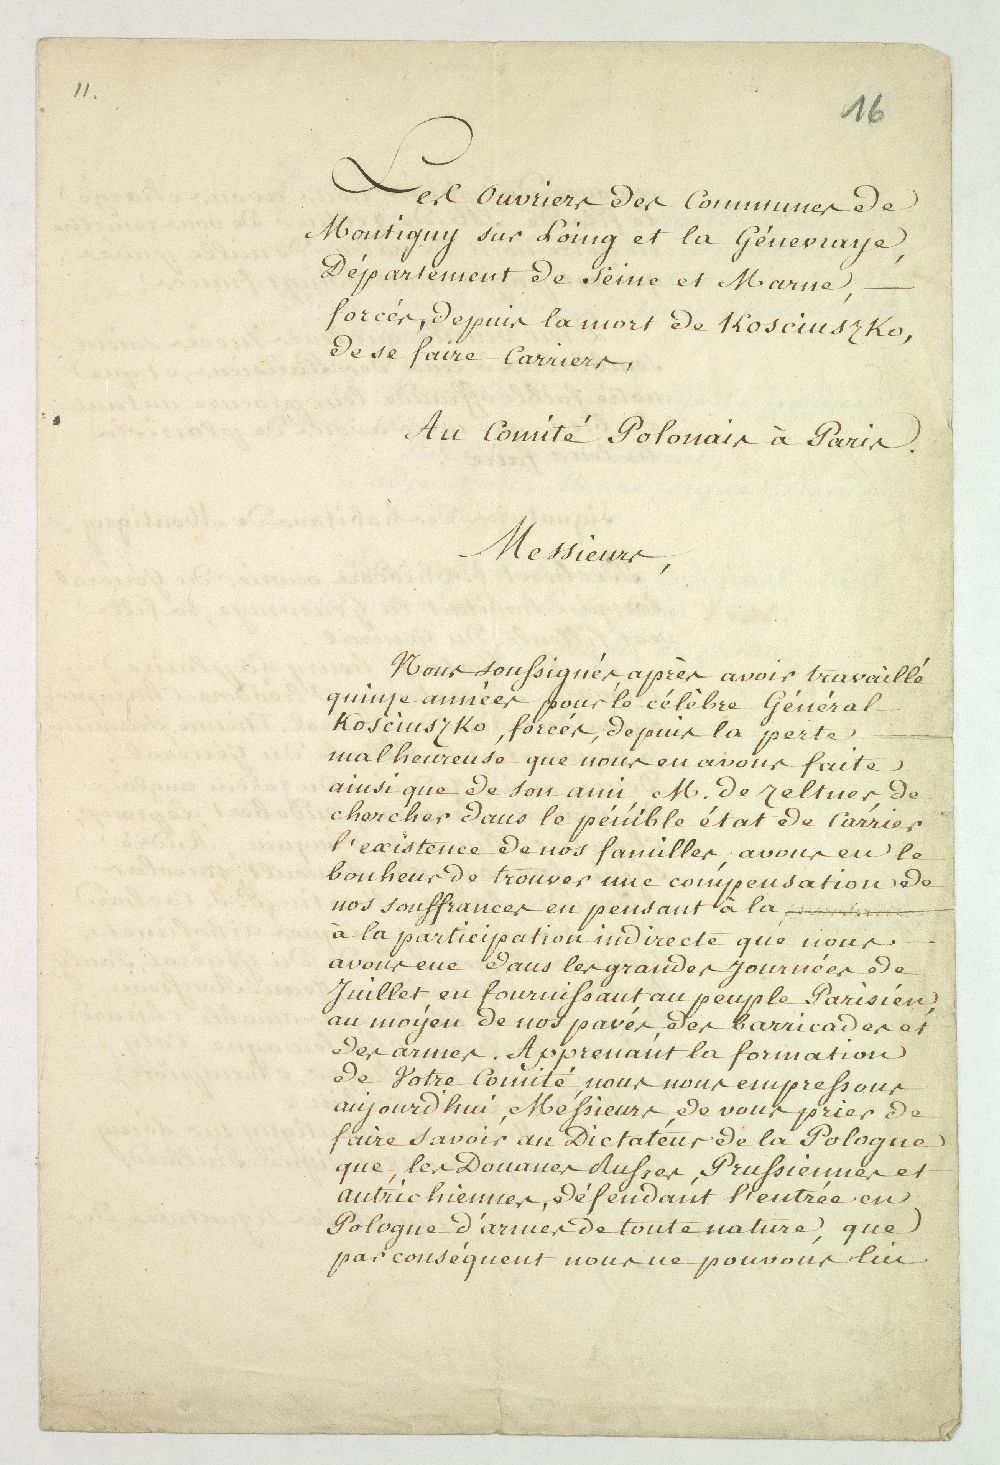 11.
16
Les Ouvriers des Communes de
Montigny sur Loing et la Génevraye,
Département de Seine et Marne,
forcés, depuis la mort de Kosciuszko,
de se faire Carriers,
Au Comité Polonais à Paris.
Messieurs,
Nous soussignés après avoir travaillé
quinze années pour le célèbre Général
Kosciuszko, forcés, depuis la perte
malheureuse que nous en avons faite
ainsi que de son ami M. de Zeltner, de
chercher dans le pénible état de Carrier
l'existence de nos familles, avons eu le
bonheur de trouver une compensation de
nos souffrances en pensant à la
à la participation indirecte que nous
avons eue dans les grandes Journées de
Juillet, en fournissant au peuple Parisien,
au moyen de nos pavés, des barricades et
des armes. Apprenant la formation
de Votre Comité, nous nous empressons
aujourd'hui, Messieurs, de vous prier de
faire savoir au Dictateur de la Pologne
que, les Douanes Russes, Prussiennes et
autrichiennes, défendant l'entrée en
Pologne d'armes de toute nature, que
par conséquent nous ne pouvons lui